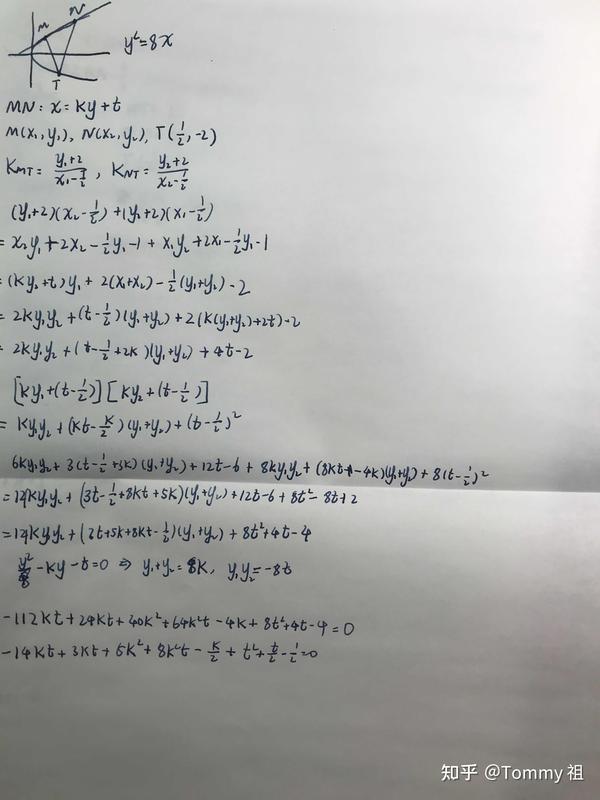 M N
y²=8x
T
MN: x=ky+t
M(x₁,y₁), N(x₂,y₂), T(½,-2)
K_MT = (y₁+2)/(x₁-½), K_NT = (y₂+2)/(x₂-½)
(y₁+2)(x₂-½)+(y₂+2)(x₁-½)
= x₂y₁+2x₂-½y₁-1+x₁y₂+2x₁-½y₁-1
= (ky₂+t)y₁+2(x₁+x₂)-½(y₁+y₂)-2
= 2ky₁y₂+(t-½)(y₁+y₂)+2(k(y₁+y₂)+2t)-2
= 2ky₁y₂+(t-½+2k)(y₁+y₂)+4t-2
[ky₁+(t-½)][ky₂+(t-½)]
= ky₁y₂+(kt-k/2)(y₁+y₂)+(t-½)²
6ky₁y₂+3(t-½+3k)(y₁+y₂)+12t-6+8ky₁y₂+(8kt-4k)(y₁+y₂)+8(t-½)²
=14ky₁y₂+(3t-½+8kt+5k)(y₁+y₂)+12t-6+8t²-8t+2
=14ky₁y₂+(3t+5k+8kt-½)(y₁+y₂)+8t²+4t-4
y²/8-ky-t=0 ⇒ y₁+y₂=8k, y₁y₂=-8t
-112kt+24kt+40k²+64k²t-4k+8t²+4t-4=0
-14kt+3kt+5k²+8k²t-k/2+t²+t/2-½=0
知乎 @Tommy 祖